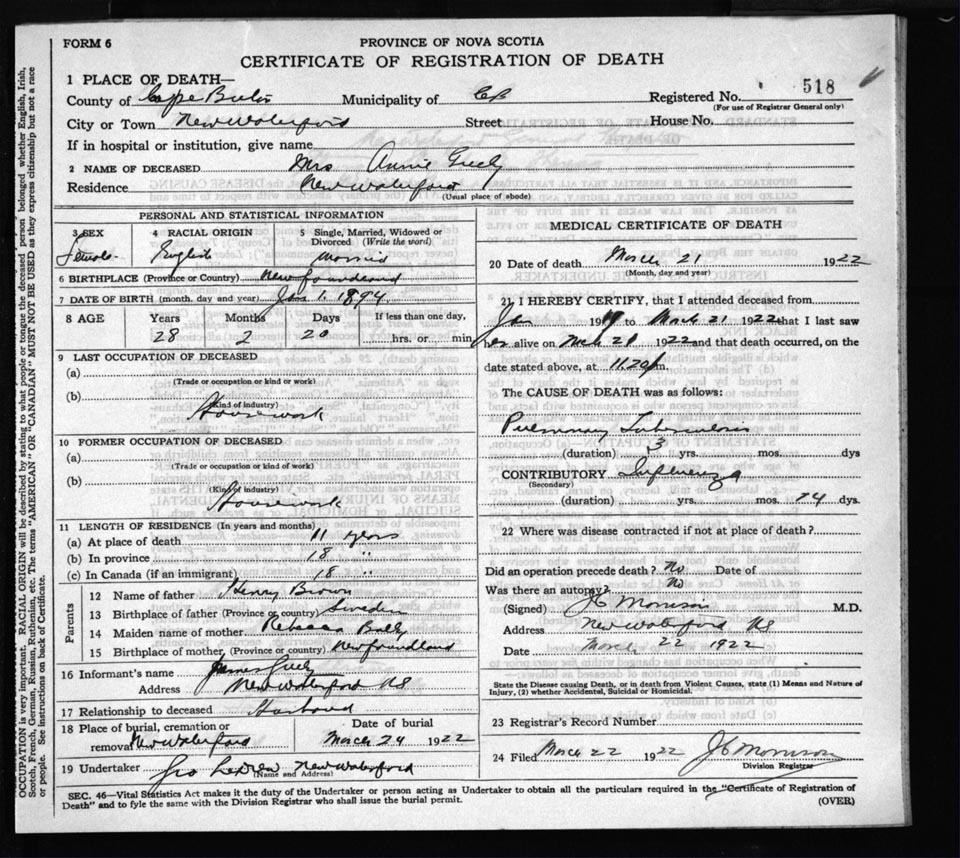 FORM 6
PROVINCE OF NOVA SCOTIA
CERTIFICATE OF REGISTRATION OF DEATH
1 PLACE OF DEATH—
518
County of Cape Breton Municipality of CB Registered No.
(For use of Registrar General only)
City or Town New Waterford Street House No.
If in hospital or institution, give name
2 NAME OF DECEASED Mrs Annie Greely
Residence New Waterford
(Usual place of abode)
PERSONAL AND STATISTICAL INFORMATION
3 SEX 4 RACIAL ORIGIN 5 Single, Married, Widowed or Divorced (Write the word)
Female English Married
6 BIRTHPLACE (Province or Country) Newfoundland
7 DATE OF BIRTH (month, day and year) Jan 1. 1894
8 AGE Years Months Days If less than one day,
28 2 20 hrs. or min.
9 LAST OCCUPATION OF DECEASED
(a)
(Trade or occupation or kind or work)
(b)
(Kind of industry)
Housework
10 FORMER OCCUPATION OF DECEASED
(a)
(Trade or occupation or kind of work)
(b)
(Kind of industry)
Housework
11 LENGTH OF RESIDENCE (In years and months)
(a) At place of death 11 years
(b) In province 18 "
(c) In Canada (if an immigrant) 18 "
Parents
12 Name of father Henry Brown
13 Birthplace of father (Province or country) Sweden
14 Maiden name of mother Rebecca
15 Birthplace of mother (Province or country) Newfoundland
16 Informant's name James Greely
Address New Waterford NS
17 Relationship to deceased Husband
18 Place of burial, cremation or removal New Waterford
Date of burial
March 24 1922
19 Undertaker Geo New Waterford
(Name and Address)
MEDICAL CERTIFICATE OF DEATH
20 Date of death March 21 1922
(Month, day and year)
21 I HEREBY CERTIFY, that I attended deceased from
Jan 19 to March 21 1922 that I last saw
her alive on Mch 21 1922 and that death occurred, on the
date stated above, at 11.20 m.
The CAUSE OF DEATH was as follows:
Pulmonary Tuberculosis
(duration) 3 yrs. mos. dys
CONTRIBUTORY Influenza
(Secondary)
(duration) yrs. mos. 14 dys.
22 Where was disease contracted if not at place of death?
Did an operation precede death? No Date of
Was there an autopsy? No
(Signed) JC Morrison M.D.
Address New Waterford NS
Date March 22 1922
State the Disease causing Death, or in death from Violent Causes, state (1) Means and Nature of
Injury, (2) whether Accidental, Suicidal or Homicidal.
23 Registrar's Record Number
24 Filed March 22 1922 JC Morrison
Division Registrar
SEC. 46—Vital Statistics Act makes it the duty of the Undertaker or person acting as Undertaker to obtain all the particulars required in the "Certificate of Registration of
Death" and to fyle the same with the Division Registrar who shall issue the burial permit.
(OVER)
OCCUPATION is very important. RACIAL ORIGIN will be described by stating to what people or tongue the deceased person belonged whether English, Irish,
Scotch, French, German, Russian, Ruthenian, etc. The terms "AMERICAN" OR "CANADIAN" MUST NOT BE USED as they express citizenship but not a race
or people. See instructions on back of Certificate.